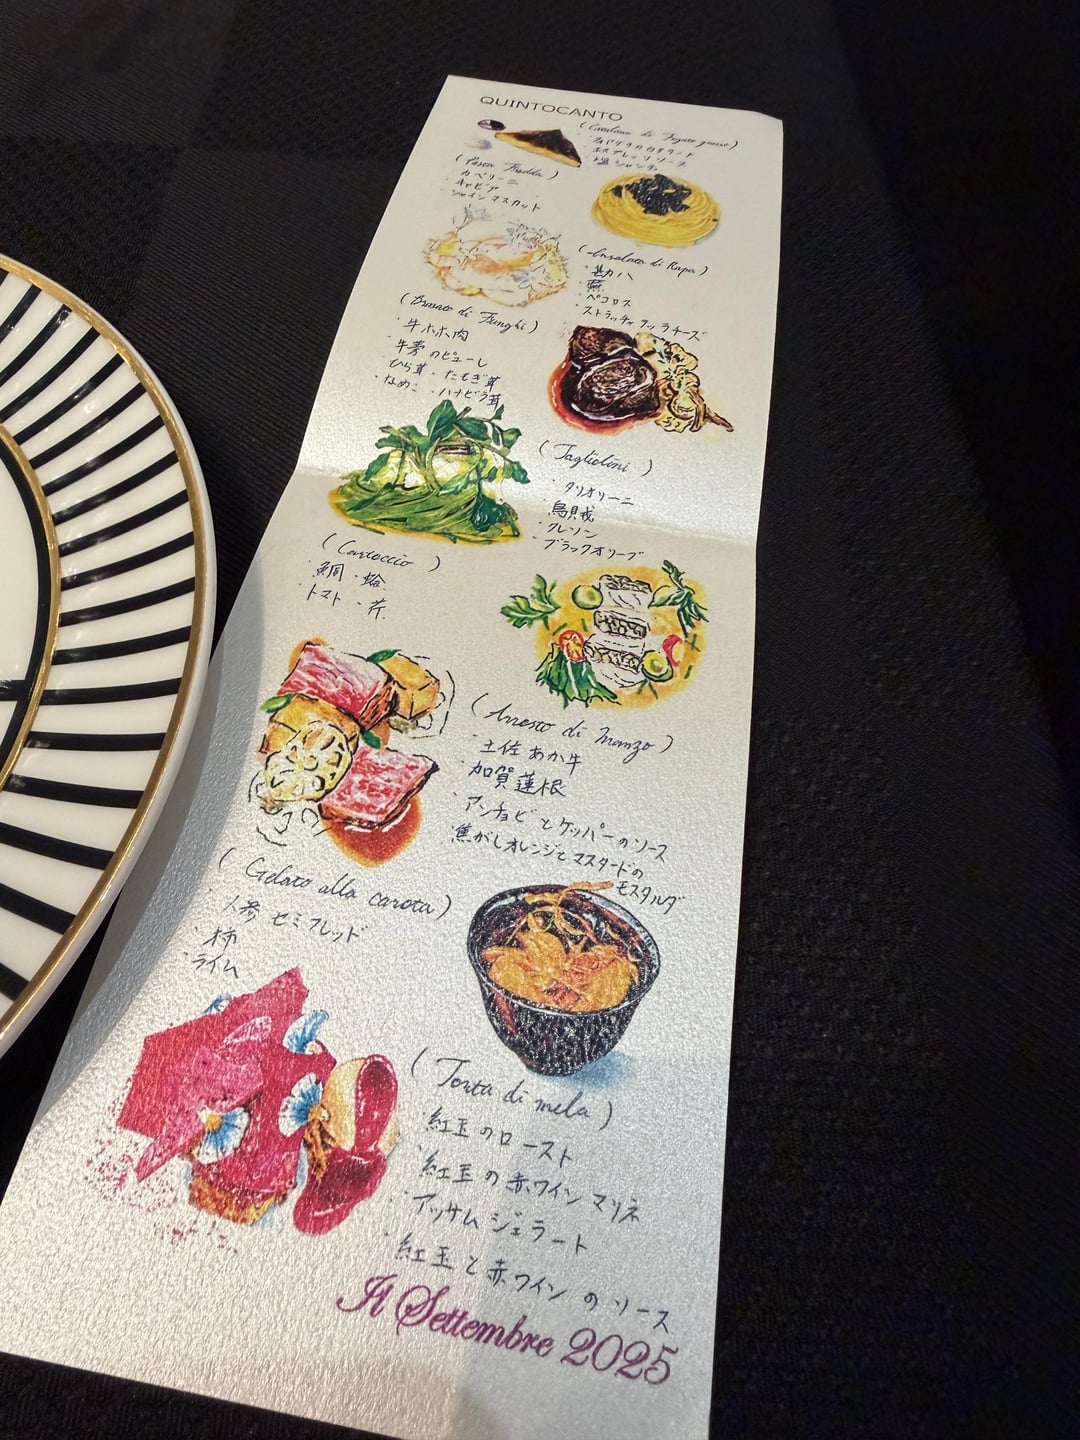 QUINTOCANTO
(Catalana di Fegato grasso)
・フォアグラのカタラーナ
・エスプレッソソース
・塩
(Pasta Fredda)
・カペリーニ
・キャビア
・シャインマスカット
(Insalata di Rapa)
・勘八
・蕪
・ペコロス
・ストラッチャテッラチーズ
(Brasato di Funghi)
・牛ホホ肉
・牛蒡のピューレ
・ひら茸・たもぎ茸
・なめこ・ハナビラ茸
(Tagliolini)
・タリオリーニ
・烏賊
・クレソン
・ブラックオリーブ
(Cartoccio)
・鯛・蛤
・トマト・芹
(Arrosto di manzo)
・土佐あか牛
・加賀蓮根
・アンチョビとケッパーのソース
・焦がしオレンジとマスタードの
モスタルダ
(Gelato alla carota)
・人参セミフレッド
・柿
・ライム
(Torta di mela)
・紅玉のロースト
・紅玉の赤ワインマリネ
・アッサムジェラート
・紅玉と赤ワインのソース
Il Settembre 2025